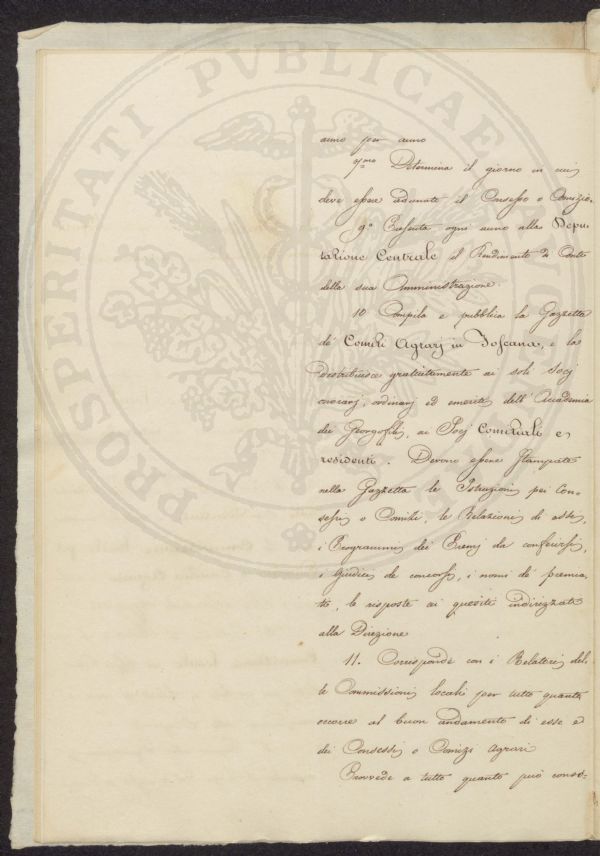 PROSPERITATI PUBLICAE AUGENDAE
anno per anno
7.mo Determina il giorno in cui
deve essere adunato il Consesso o Comizio.
9.o Presenta ogni anno alla Depu-
tazione Centrale il Rendimento di Conto
della sua Amministrazione.
10 Compila e pubblica la Gazzetta
de' Comizi Agrarj in Toscana, e la
distribuisce gratuitamente ai soli Socj
onorarj, ordinarj ed emeriti dell'Accademia
dei Georgofili, ai Socj Comiziali e
residenti. Devono essere stampate
nella Gazzetta le Istruzioni pei Con-
sessi o Comizi, le Relazioni di essi,
i Programmi dei Premj da conferirsi,
i giudici de concorsi, i nomi de' premia-
ti, le risposte ai quesiti indirizzati
alla Direzione
11. Corrisponde con i Relatori del-
le Commissioni locali per tutto quanto
occorre al buon andamento di esse e
dei Consessi o Comizi agrari
Provvede a tutto quanto può conse-